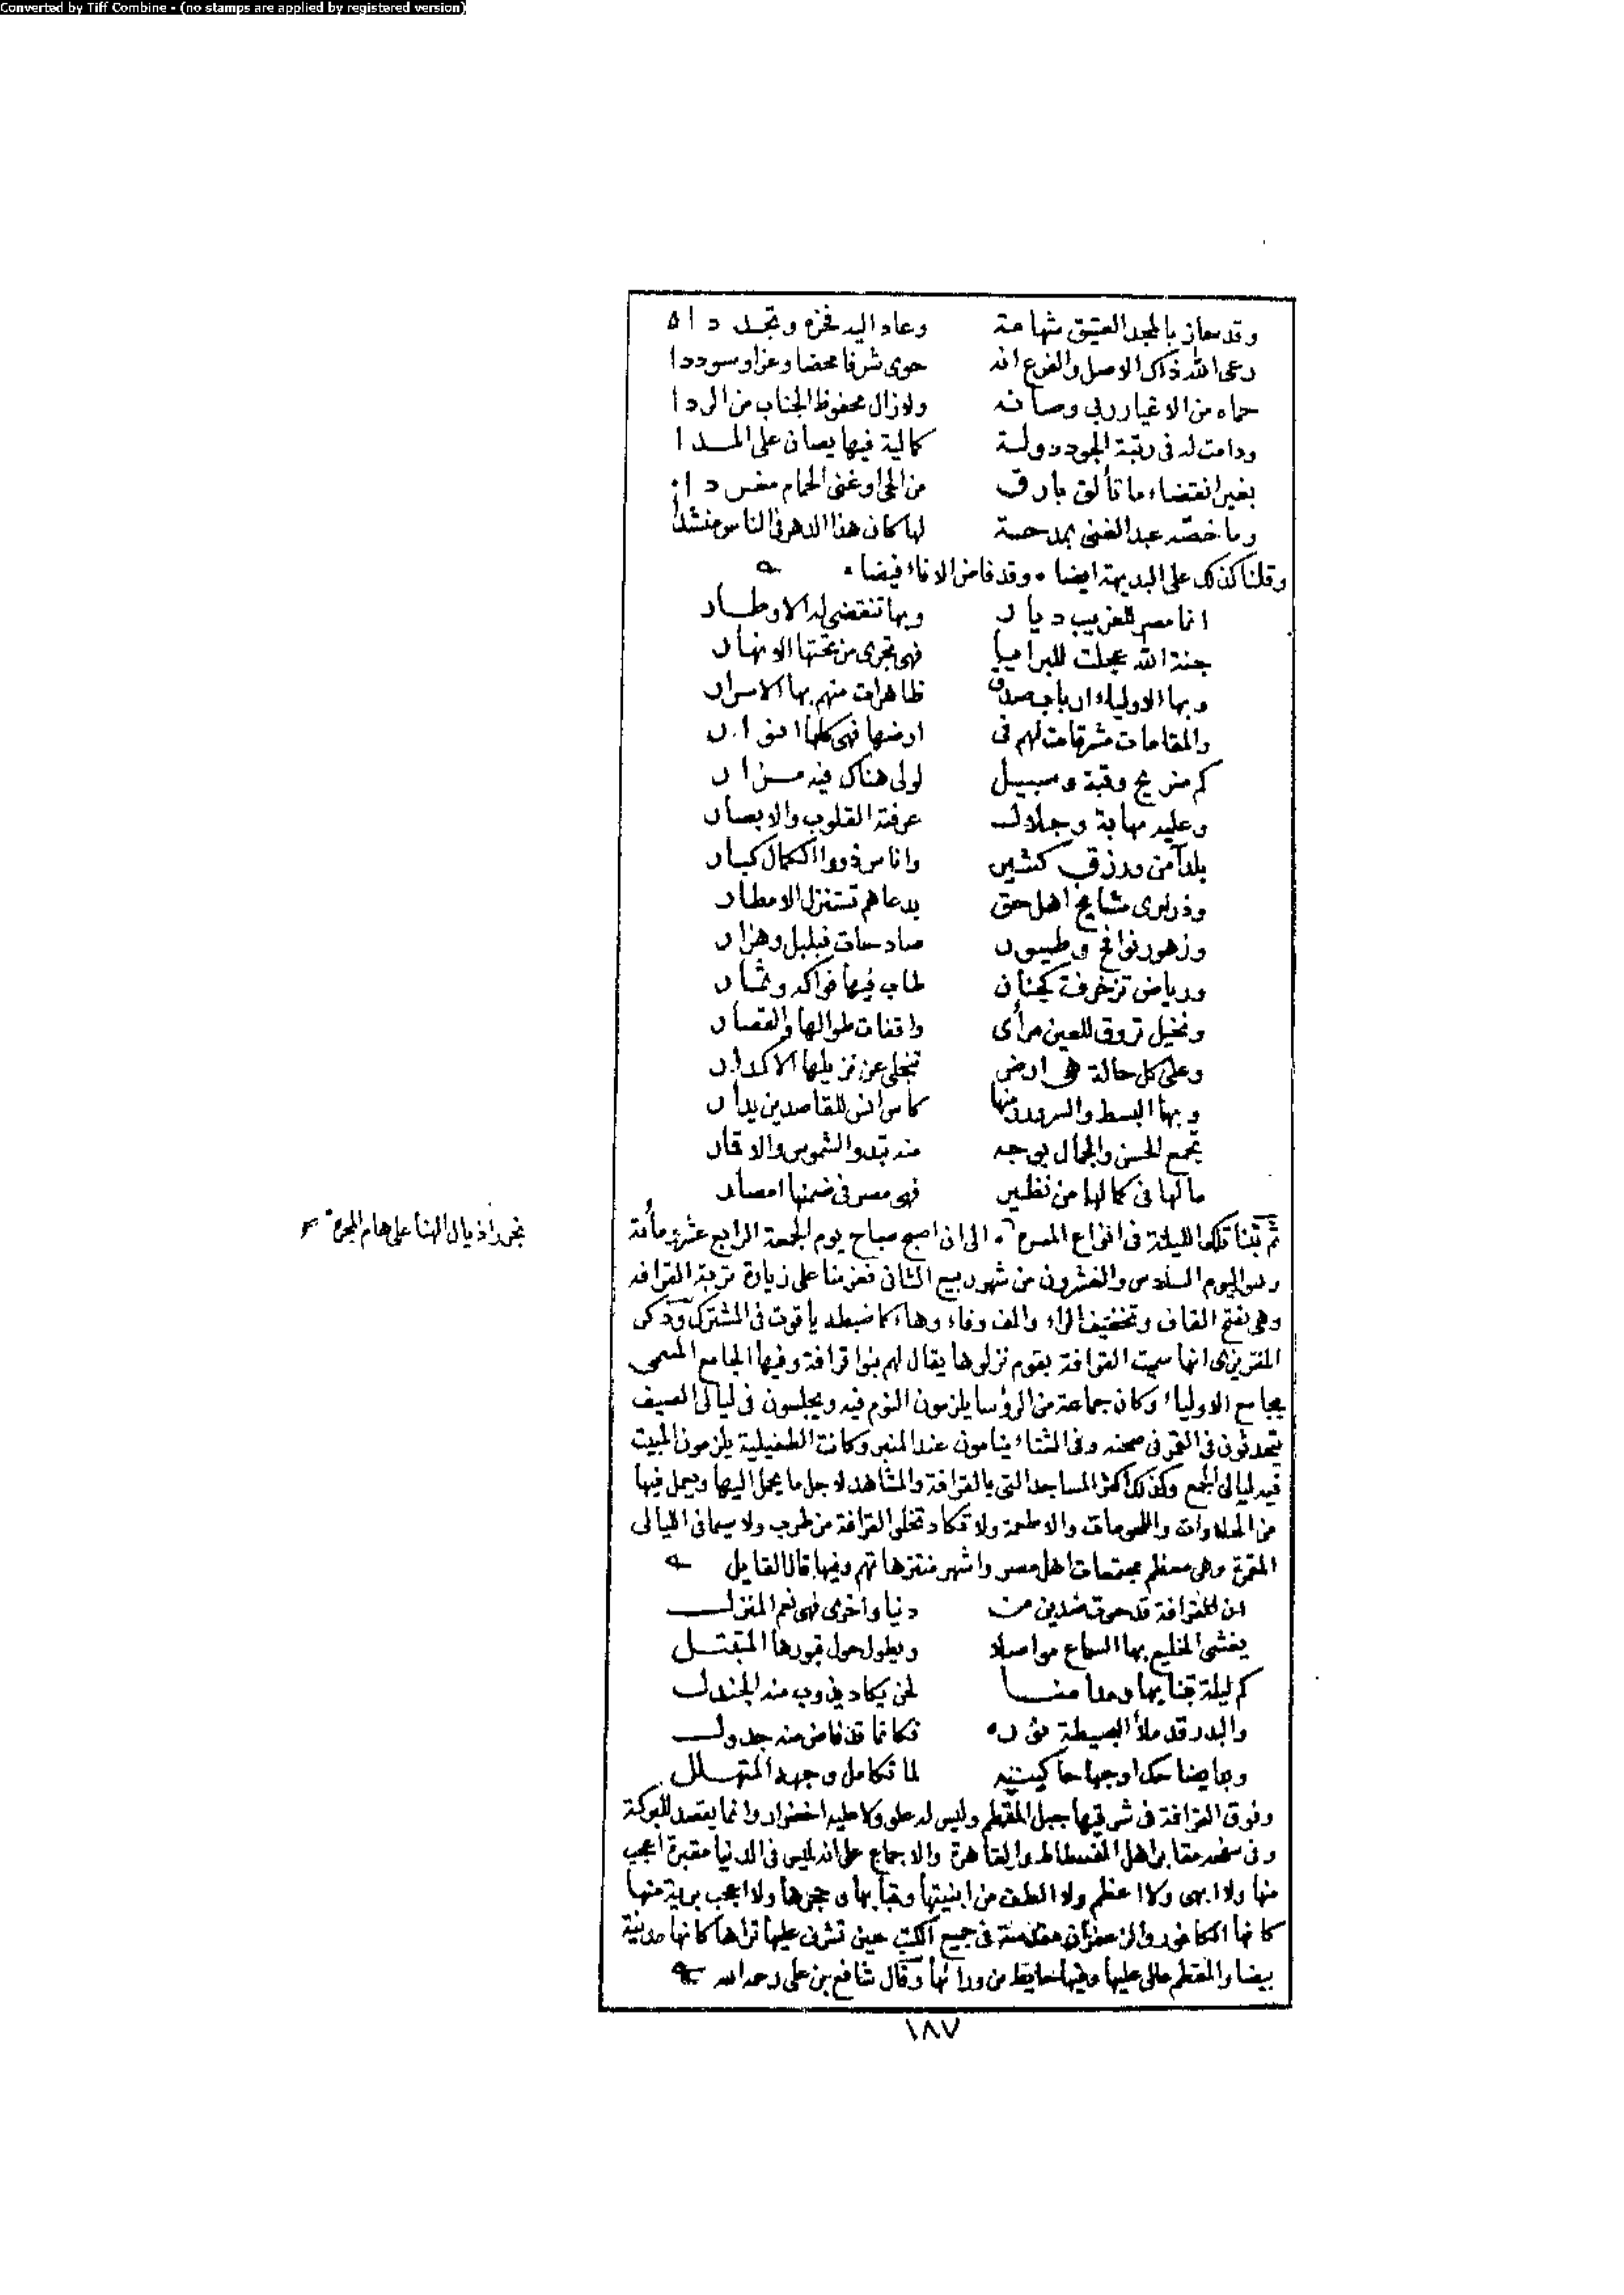 Converted by Tiff Combine - (no stamps are applied by registered version)
وقد حاز بالمجد العتيق شهامة وعاد اليه فخره وتجددا
رعى الله ذاك الاصل والفرع انه حوى شرفا محضا وعزا وسوددا
حماه من الاغيار ربي وصانه ولازال محفوظ الجناب من الردا
ودامت له في رتبة الجود دولة كمالية فيها يصان على المدا
بغير انقضاء ما تألق بارق من الحي او غنى الحمام مغردا
وما خصه عبد الغني بمدحة لها كان هذا الدهر في الناس منشدا
وقلنا كذلك على البديهة ايضا وقد فاض الاناء فيضا
انما مصر للغريب ديار وبها تنقضي له الاوطار
جنة الله عجلت للبرايا فهي تجري من تحتها الانهار
وبها الاولياء ارباب صدق ظاهرات منهم بها الاسرار
والمقامات مشرقات لهم في ارضها فهي كلها انوار
كم ضريح وقبة وسبيل لولي هناك فيه مزار
وعليه مهابة وجلال عرفته القلوب والابصار
بلد آمن ورزق كثير واناس ذووا الكمال كبار
وذرى مشايخ اهل حق بدعاهم تستنزل الامطار
وزهور نوافح وطيور صادحات فبلبل وهزار
ورياض تزخرفت كجنان طاب فيها فواكه وثمار
ونخيل تروق للعين مرأى واقفات طوالها والقصار
وعلى كل حالة هي ارض تنجلي عن نزيلها الاكدار
وبها البسط والسرور منها كاس انس للقاصدين يدار
تجمع الحسن والجمال بوجه منه تبدو الشموس والاقمار
ما لها في كمالها من نظير فهي مصر في ضمنها امصار
ثم بتنا تلك الليلة في انواع المسرة الى ان اصبح صباح يوم الجمعة الرابع عشر ومأئة
نجر راذيال الهنا على هام المجرة
وهو اليوم السادس والعشرون من شهر ربيع الثاني فعزمنا على زيارة تربة القرافه
وهي بفتح القاف وتخفيف الراء والف وفاء وهاء كما ضبطه ياقوت في المشترك وذكر
المقريزي انها سميت القرافة بقوم نزلوها يقال لهم بنوا قرافة وفيها الجامع المسمى
بجامع الاولياء وكان جماعة من الرؤسا يلزمون النوم فيه ويجلسون في ليالي الصيف
يتحدثون في القمر في صحنه وفي الشتاء ينامون عند المنبر وكانت الطفيلية يلزمون المبيت
فيه ليالي الجمع وكذلك اكثر المساجد التي بالقرافة والمشاهد لاجل ما يحمل اليها ويعمل فيها
من الحلاوات واللحومات والاطعمة ولا تكاد تخلو القرافة من طرب ولا سيما في الليالي
المقمرة وهي معظم مجتمعات اهل مصر واشهر منتزهاتهم وفيها قال القايل
ان القرافة قد حوت ضدين من دنيا واخرى فهي نعم المنزل
يغشى الخليع بها السماع مواصلا ويطوف حول قبورها المتبتل
كم ليلة بتنا بها ونديمنا لحن يكاد يذوب منه الجندل
والبدر قد ملأ البسيطة نوره فكانما قد فاض منه جدول
وبدا يضاحك اوجها حاكينه لما تكامل وجهه المتهلل
وفوق القرافة في شرقيها جبل المقطم وليس له علو ولا عليه اخضرار وانما يقصد للبركة
وفي سفحه مقابر اهل الفسطاط والقاهرة والاجماع على انه ليس في الدنيا مقبرة اعجب
منها ولا ابهى ولا اعظم ولا الطف من ابنيتها وقبابها وحجرها ولا اعجب برية منها
كانها الكافور والزعفران مقدسة في جميع الكتب حين تشرف عليها تراها كانها مدينة
بيضا والمقطم عالي عليها وفيها حايط من ورائها وقال شافع بن علي رحمه الله
١٨٧